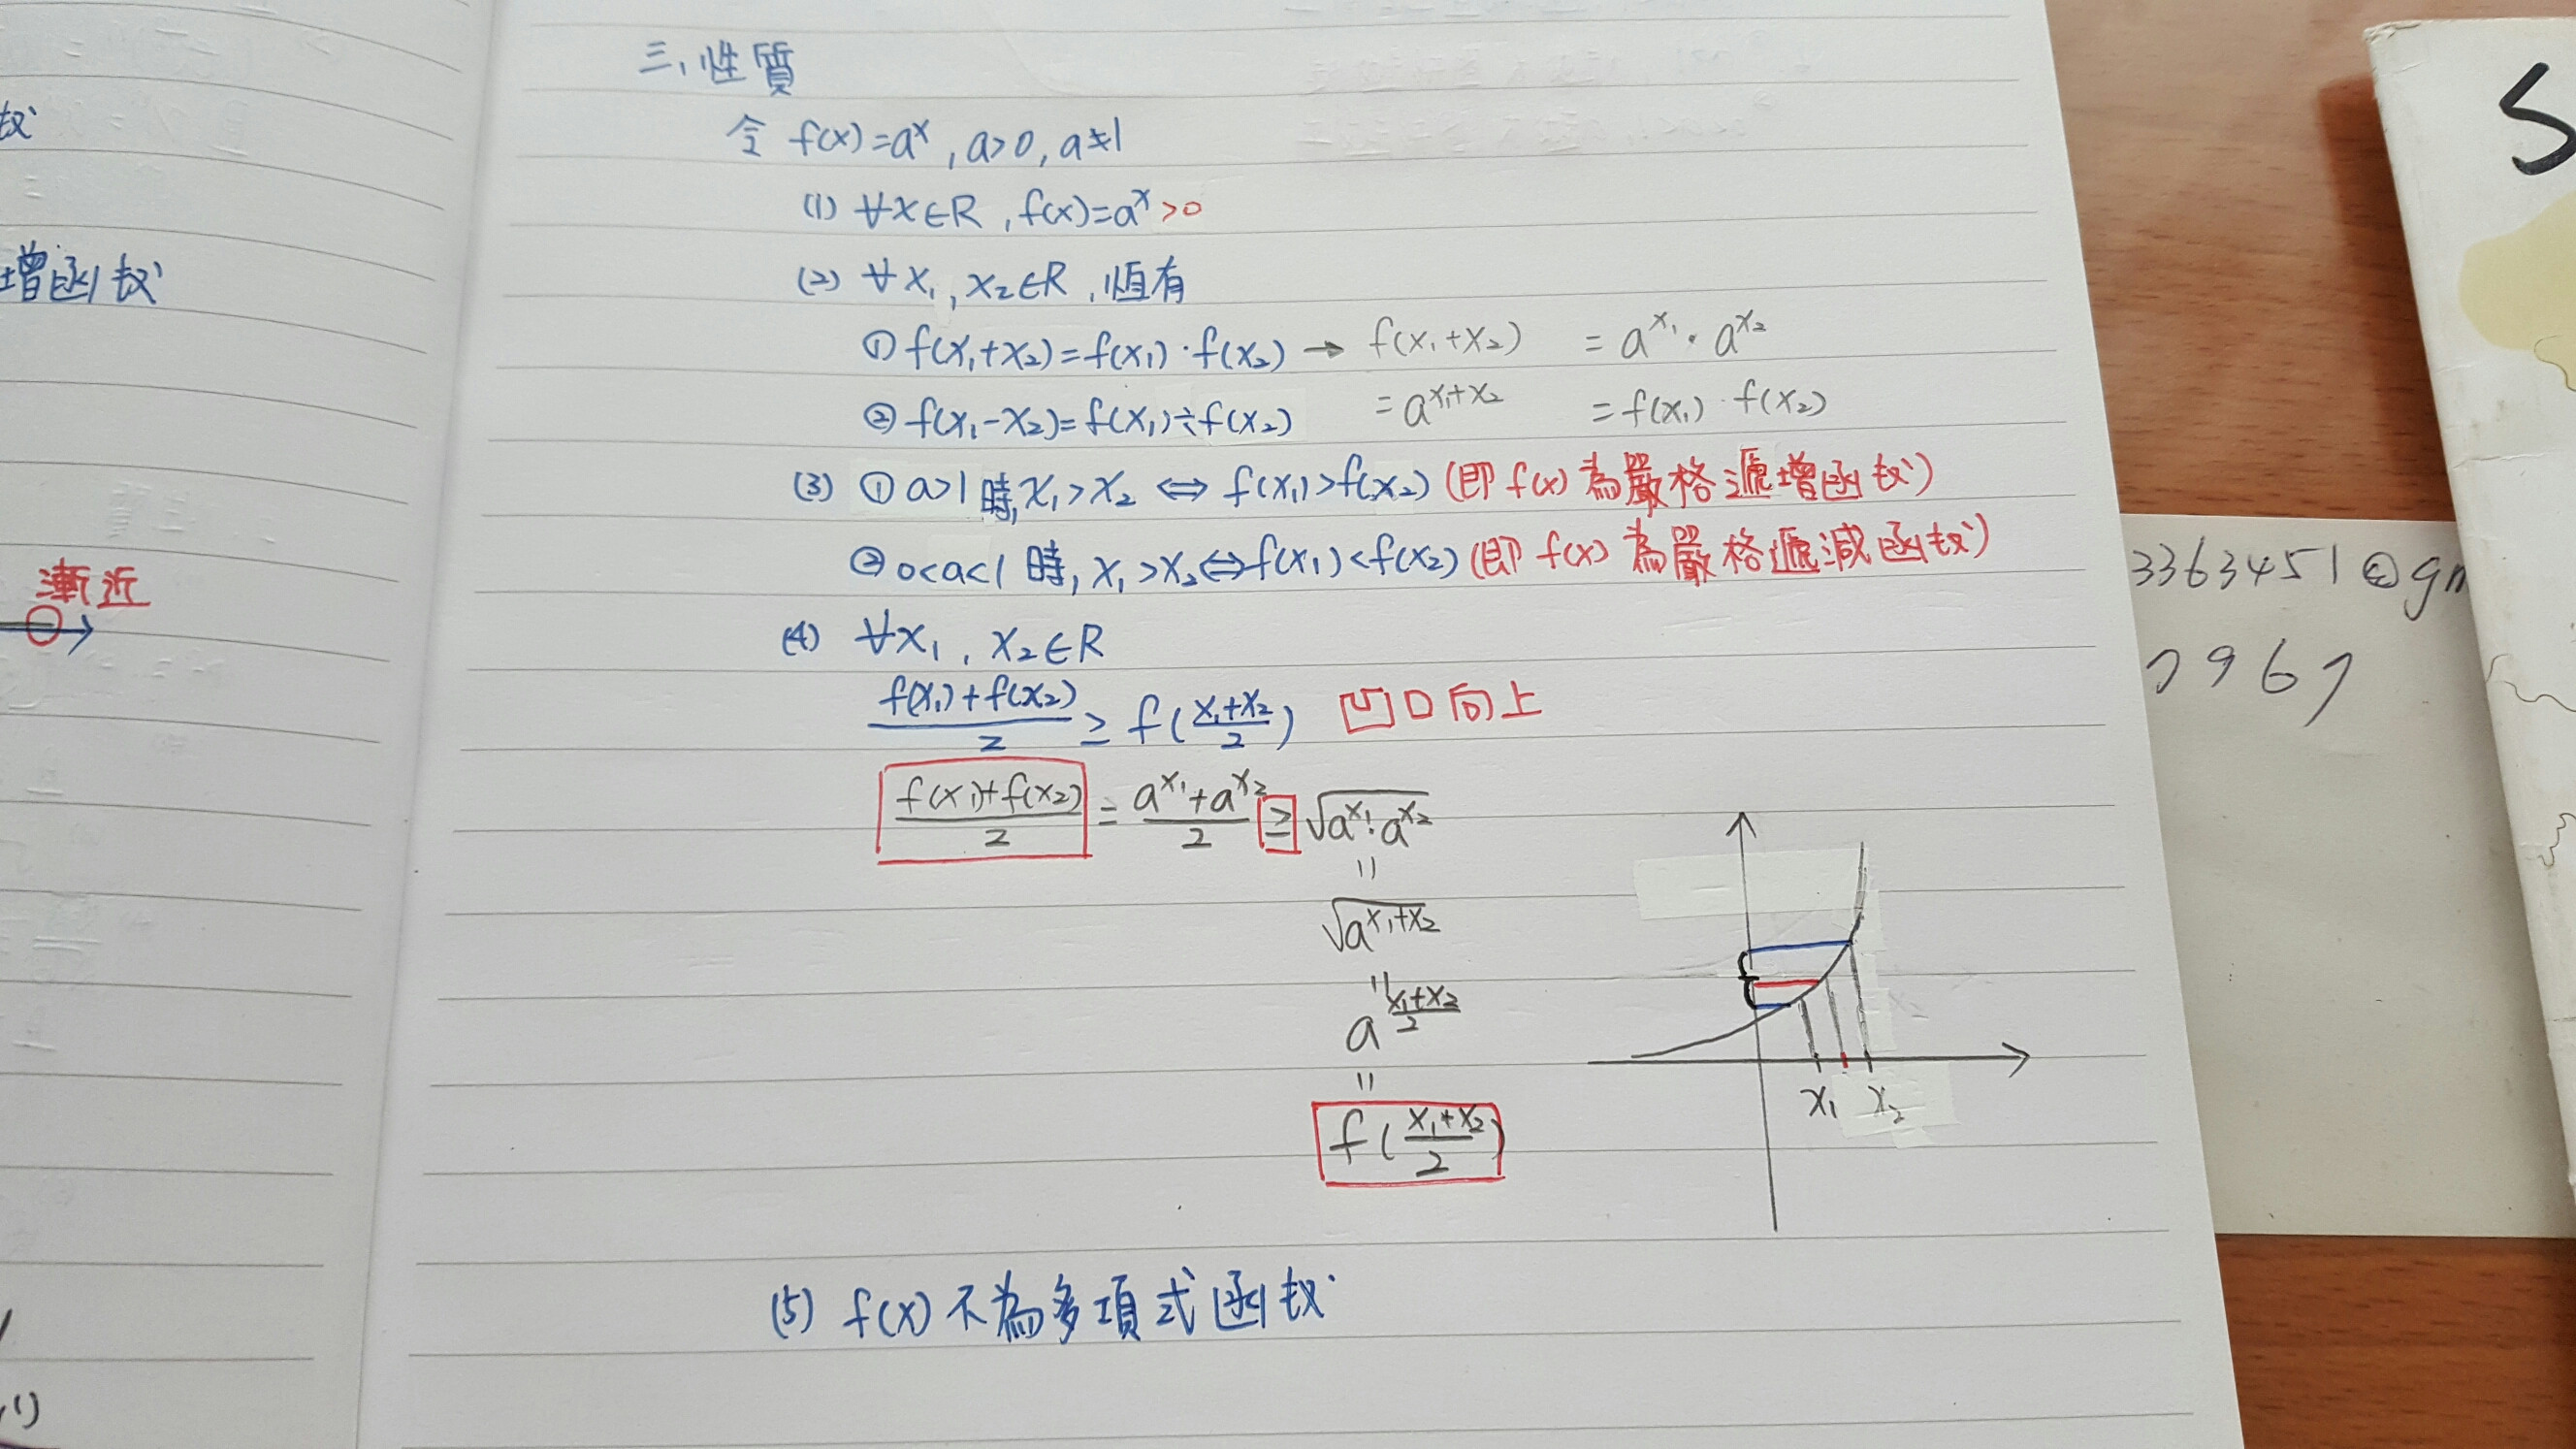 三、性質
令 f(x)=aˣ , a>0, a≠1
(1) ∀x∈R , f(x)=aˣ>0
(2) ∀x₁, x₂∈R , 恆有
① f(x₁+x₂)=f(x₁)·f(x₂) → f(x₁+x₂) = a^x₁ · a^x₂
② f(x₁-x₂)=f(x₁)÷f(x₂) = a^(x₁+x₂) = f(x₁)·f(x₂)
(3) ① a>1 時, x₁>x₂ ⇔ f(x₁)>f(x₂) (即 f(x) 為嚴格遞增函数)
② 0<a<1 時, x₁>x₂ ⇔ f(x₁)<f(x₂) (即 f(x) 為嚴格遞減函数)
(4) ∀x₁, x₂∈R
(f(x₁)+f(x₂))/2 ≥ f((x₁+x₂)/2) 凹口向上
(f(x₁)+f(x₂))/2 = (a^x₁+a^x₂)/2 ≥ √(a^x₁·a^x₂)
=
√(a^(x₁+x₂))
=
a^((x₁+x₂)/2)
=
f((x₁+x₂)/2)
x₁ x₂
(5) f(x) 不為多項式函数
数
增函数
漸近
3363451@gm
7967
S